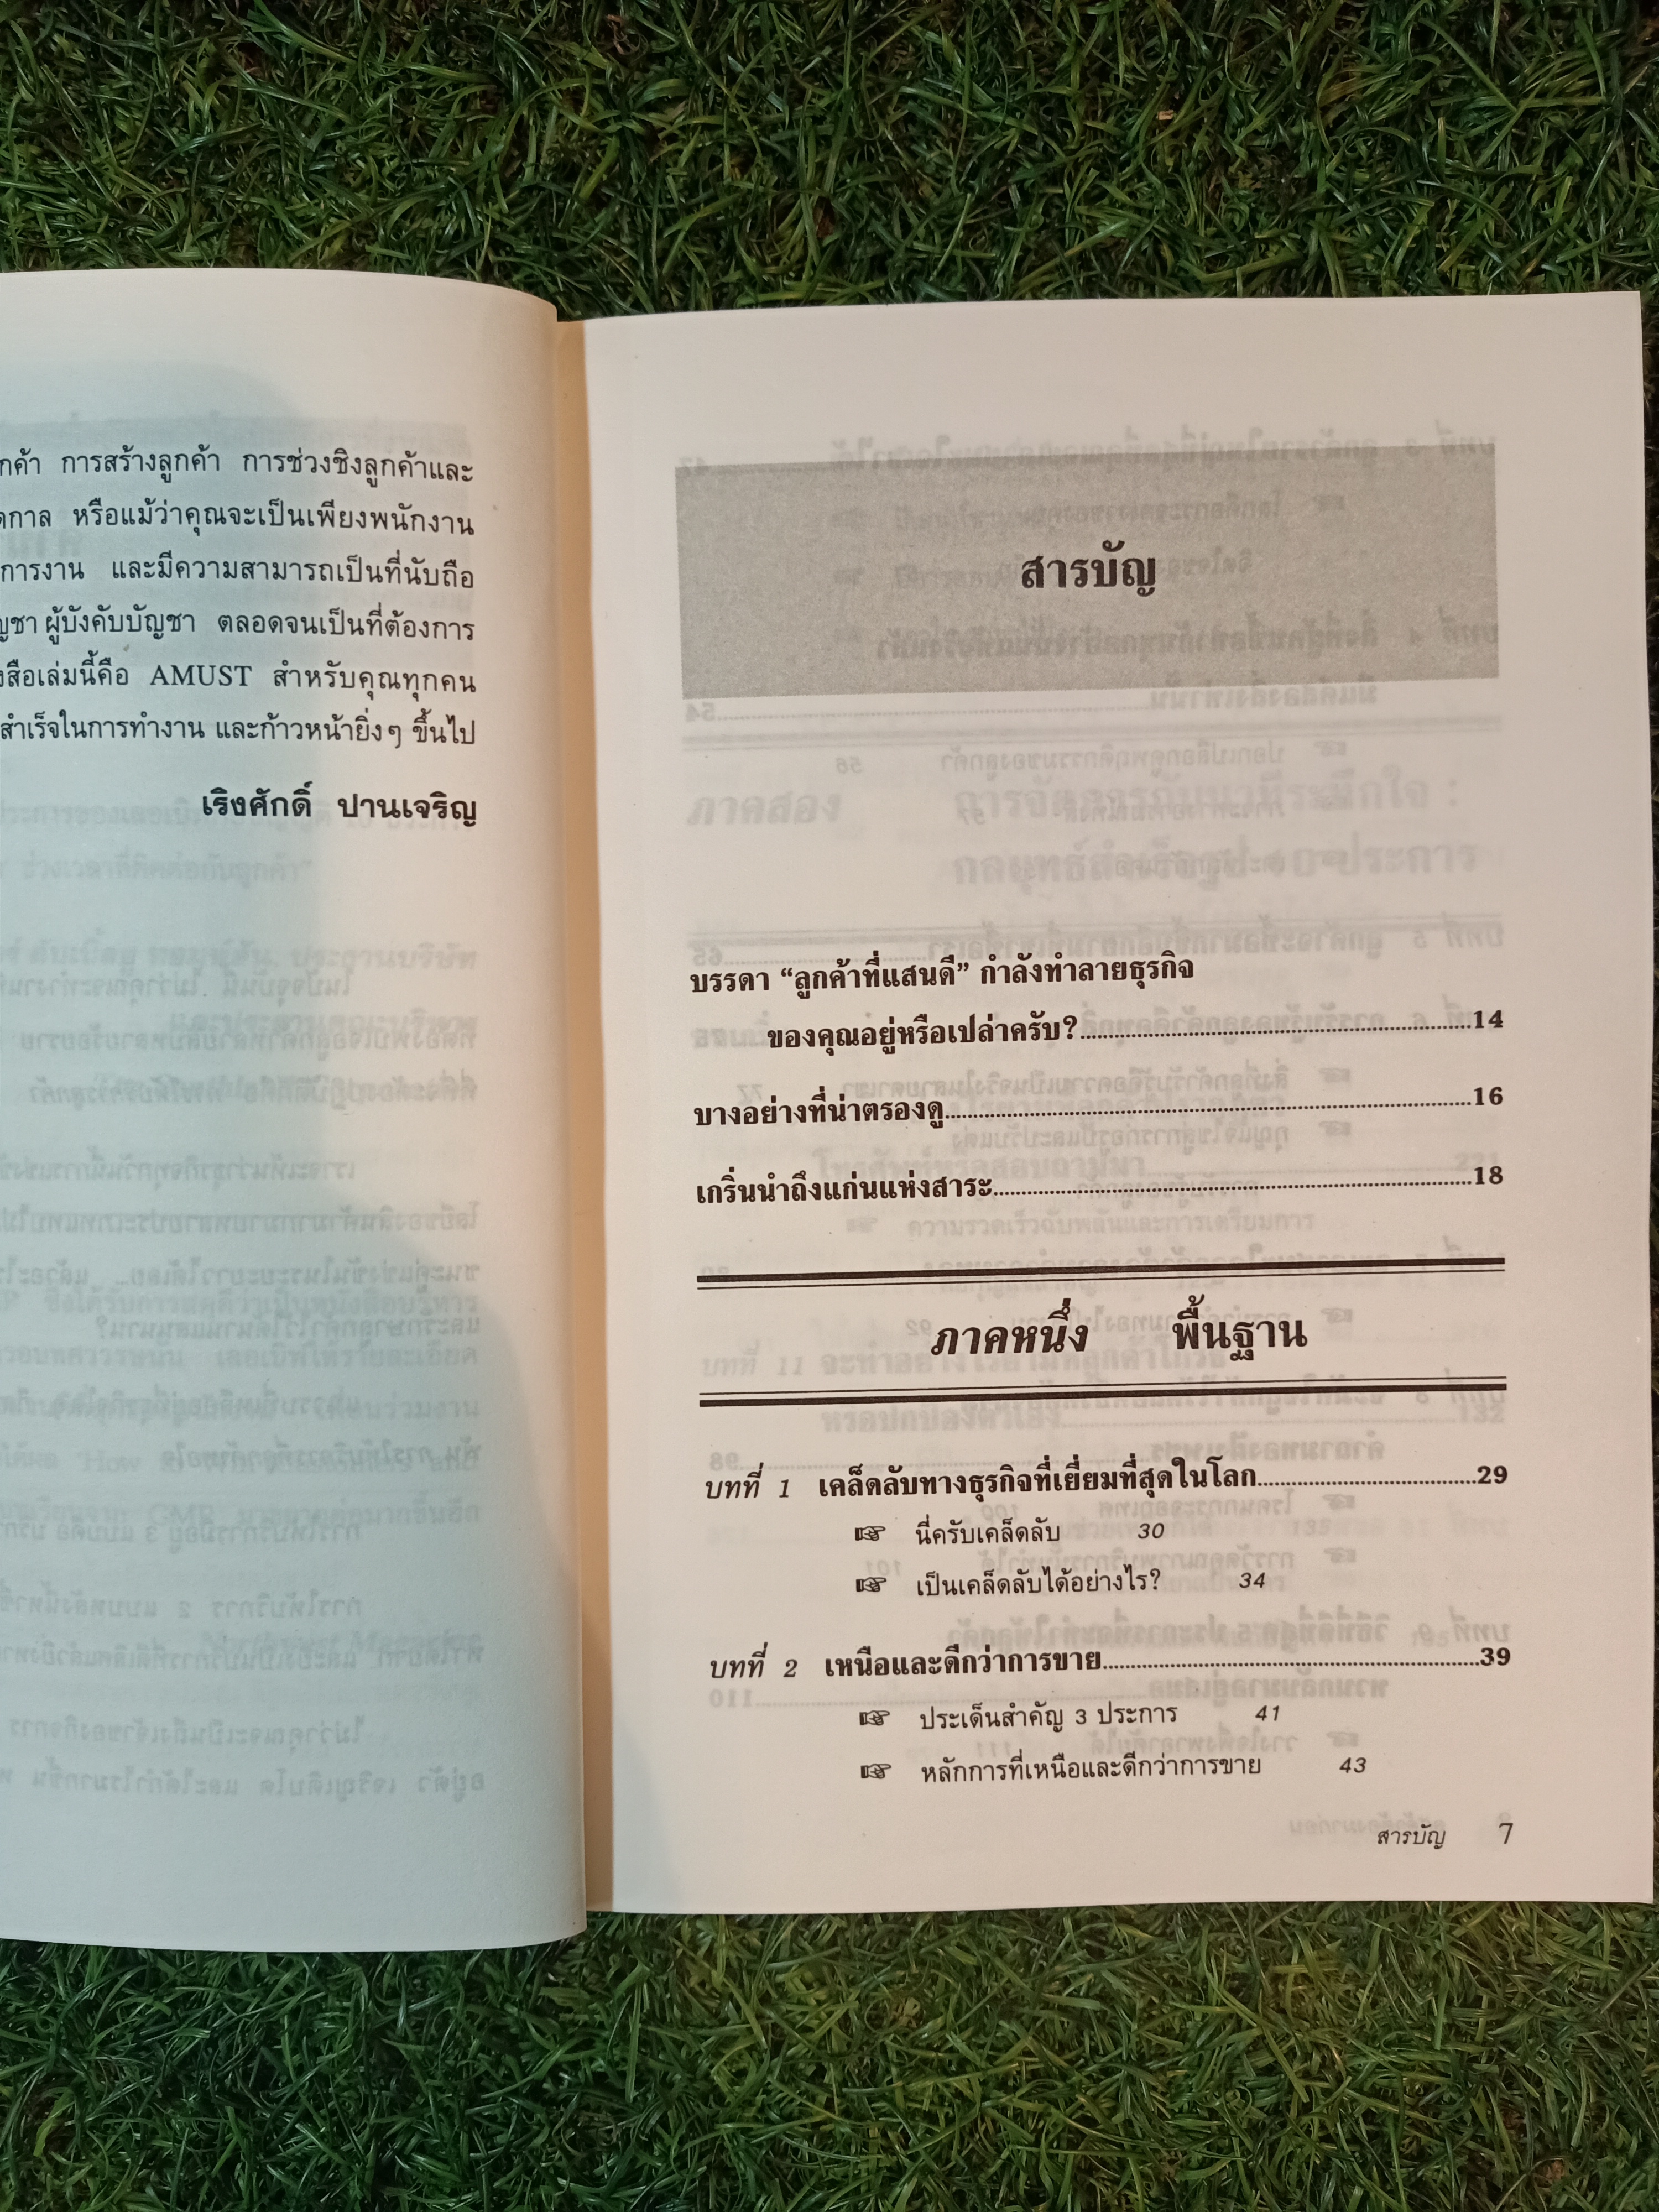 กค้า การสร้างลูกค้า การช่วงชิงลูกค้าและ
หรือแม้ว่าคุณจะเป็นเพียงพนักงาน
การงาน และมีความสามารถเป็นที่นับถือ
ผู้บังคับบัญชา ตลอดจนเป็นที่ต้องการ
สือเล่มนี้คือ AMUST สำหรับคุณทุกคน
สำเร็จในการทำงาน และก้าวหน้ายิ่งๆ ขึ้นไป
เริงศักดิ์ ปานเจริญ
สารบัญ
บรรดา “ลูกค้าที่แสนดี” กำลังทำลายธุรกิจ
ของคุณอยู่หรือเปล่าครับ?....................14
บางอย่างที่น่าตรองดู....................16
เกริ่นนำถึงแก่นแห่งสาระ....................18
ภาคหนึ่ง พื้นฐาน
บทที่ 1 เคล็ดลับทางธุรกิจที่เยี่ยมที่สุดในโลก....................29
☞ นี่ครับเคล็ดลับ 30
☞ เป็นเคล็ดลับได้อย่างไร? 34
บทที่ 2 เหนือและดีกว่าการขาย....................39
☞ ประเด็นสำคัญ 3 ประการ 41
☞ หลักการที่เหนือและดีกว่าการขาย 43
สารบัญ 7